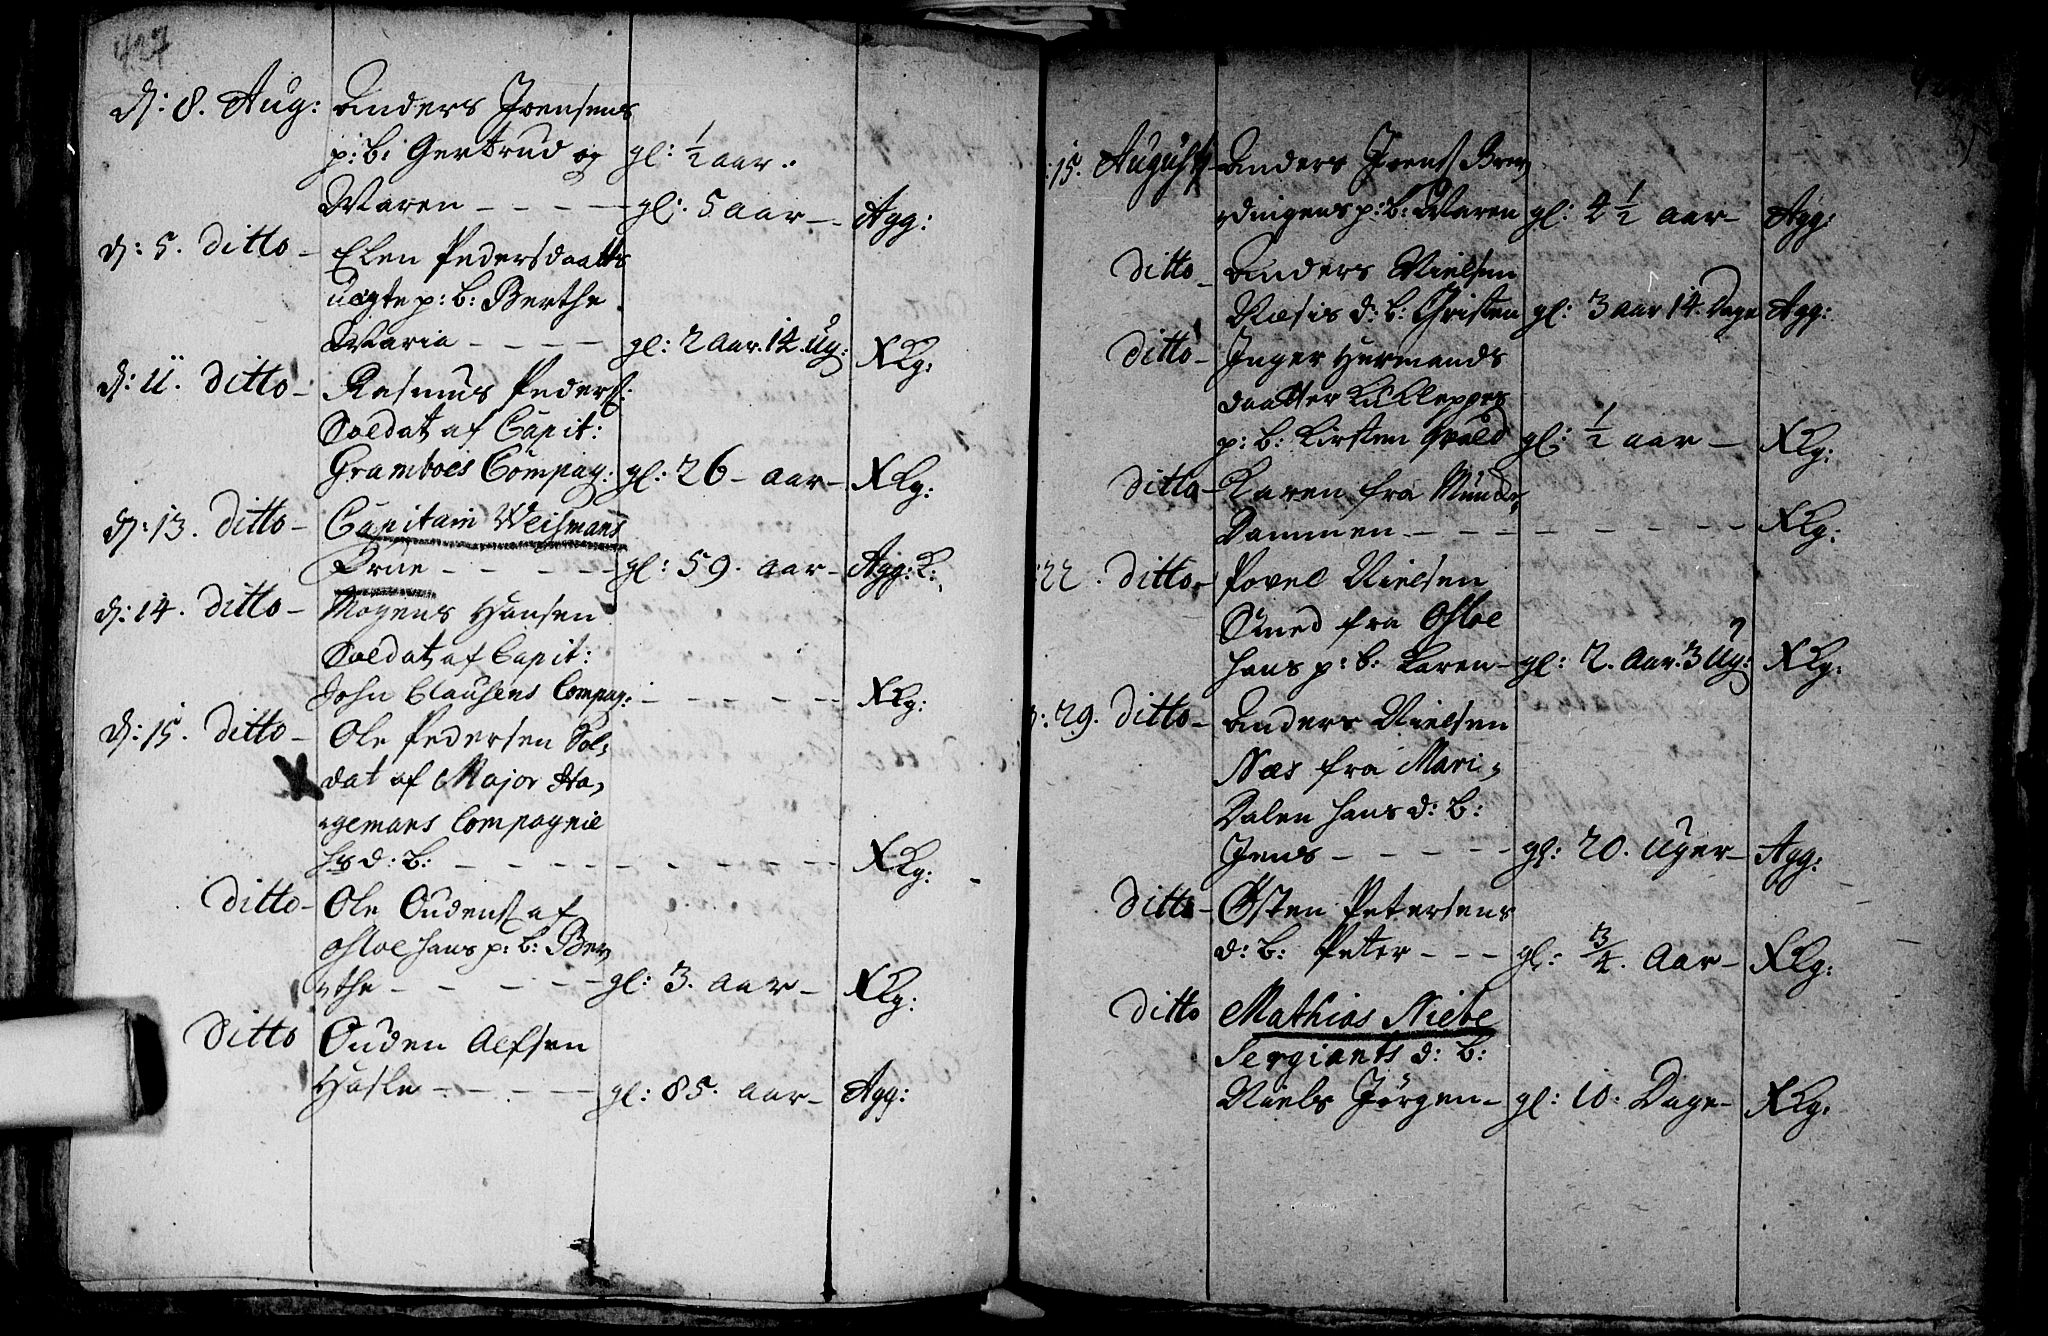 427
d: 8. Aug: Anders Joensens
p: b: Gertrud og gl: ½ aar.
Maren - - - - gl: 5 aar - Agg:
d: 5. ditto - Elen Pedersdaatts
uægte p: b: Berthe
Maria - - - - gl: 2 aar. 14. Ug: XKg:
d: 11. ditto - Rasmus Peders:
Soldat af Capit:
Gramboes Compag: gl: 26 - aar - XKg:
d: 13. ditto - Capitain Weismans
Frue - - - - - gl: 59. aar - Agg: K:
d: 14. ditto - Mogens Hansen
Soldat af Capit:
John Clausens Compag: - - - - - XKg:
d: 15. ditto - Ole Pedersen Sol,
dat af Major Ha,
gemans Compagnie
hs d: b: - - - - - - - - XKg:
ditto - Ole Oudens af
Osloe hans p: b: Ber,
the - - - - - gl: 3. aar - XKg:
ditto Ouden Alfsen
Hasle - - - - - gl: 85. aar - Agg:
15. August - Anders Joens
p: b: Maren gl: 4 ½ aar - Agg:
ditto - Anders Nielsen
Næsis d: b: Christen gl: 3 aar 14. Dage Agg:
ditto - Inger Hermands
daatter
p: b: Kirsten gl: ½ aar - XKg:
ditto - Karen fra Munke,
Dammen - - - - - - - - XKg:
22. ditto - Povel Nielsen
Smed fra Osloe
hans p: b: Karen - gl: 2. aar. 3 Ug: XKg:
29. ditto - Anders Nielsen
Næs fra Mari,
Dalen hans d: b:
Jens - - - - - gl: 20. Uger - Agg:
ditto - Østen Petersens
d: b: Peter - - - gl: ¾. Aar - XKg:
ditto Mathias Niebe
Sergiants d: b:
Niels Jörgen - gl: 10. Dage - XKg: